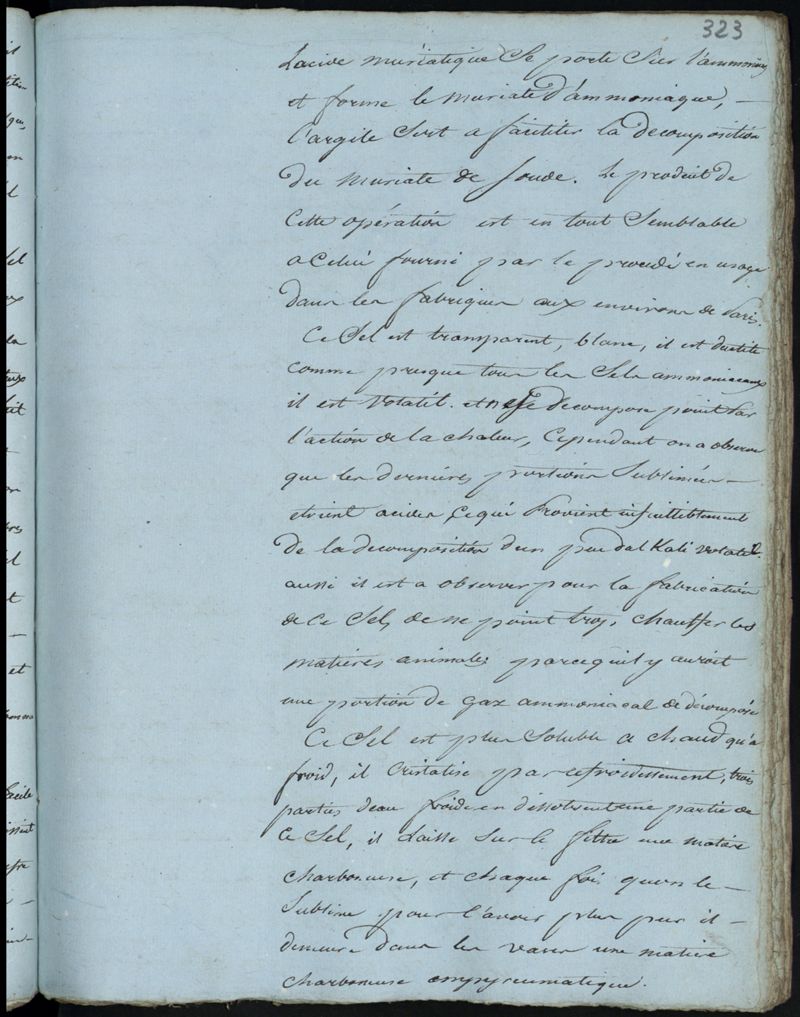 323
Lacide muriatique Se porte Sur l'ammoniaq
et forme le muriate d'ammoniaque, —
l'argile Sert a faciliter la decomposition
du muriate de soude. Le produit de
Cette opération est en tout Semblable
a Celui fourni par le procédé en usage
dans les fabriques aux environs de Paris.
Ce Sel est transparent, blanc, il est ductile
comme presque tous les Sels ammoniacaux
il est Volatil. et ne se decompose point Par
l'action de la chaleur, Cependant on a observé
que les dernieres portions Sublimées —
etoient acides, Ce qui Provient infailliblement
de la decomposition d'un peu dalKali volatil.
aussi il est a observer pour la fabrication
de Ce Sel, de ne point trop chauffer les
matières animales parcequil y auroit
une portion de gaz ammoniacal de décomposée
Ce Sel est plus Soluble a chaud qu'a
froid, il Cristalise par refroidissement, trois
parties deau froide en dissolvent une partie de
Ce Sel, il Laisse Sur le filtre une matiere
charboneuse, et chaque fois quon le —
Sublime pour l'avoir plus pur il —
demeure dans les vases une matiere
charboneuse empyreumatique.